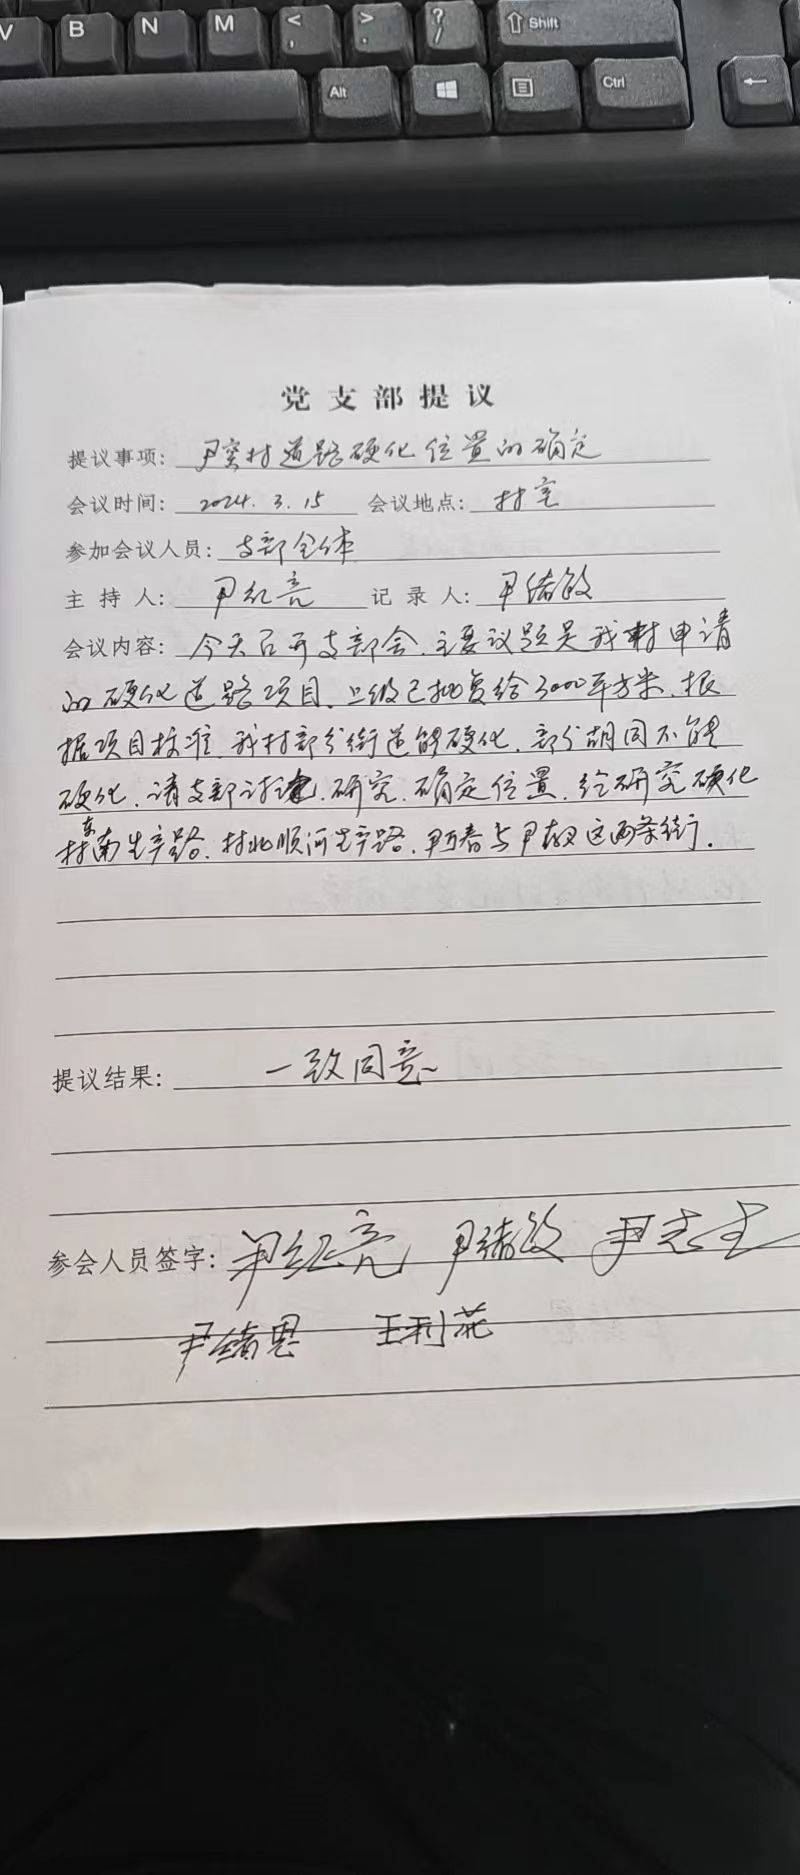 V B N M < , > . ? / ⇧ Shift
Alt Ctrl ←
党支部提议
提议事项: 尹寨村道路硬化位置的确定
会议时间: 2024.3.15 会议地点: 村室
参加会议人员: 支部全体
主持人: 尹红亮 记录人: 尹绪敏
会议内容: 今天召开支部会,主要议题是我村申请
的硬化道路项目,上级已批复给3000平方米,根
据项目标准,我村部分街道能硬化,部分胡同不能
硬化,请支部讨论,研究,确定位置,经研究硬化
村东南生产路,村北顺河生产路,尹春与尹这两条街.
提议结果: 一致同意
参会人员签字: 尹红亮 尹绪敏 尹志
尹绪恩 王利花